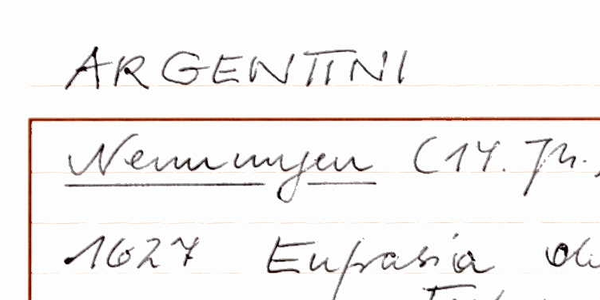 ARGENTINI
Nennungen (14. Jh.
1627 Eufrasia